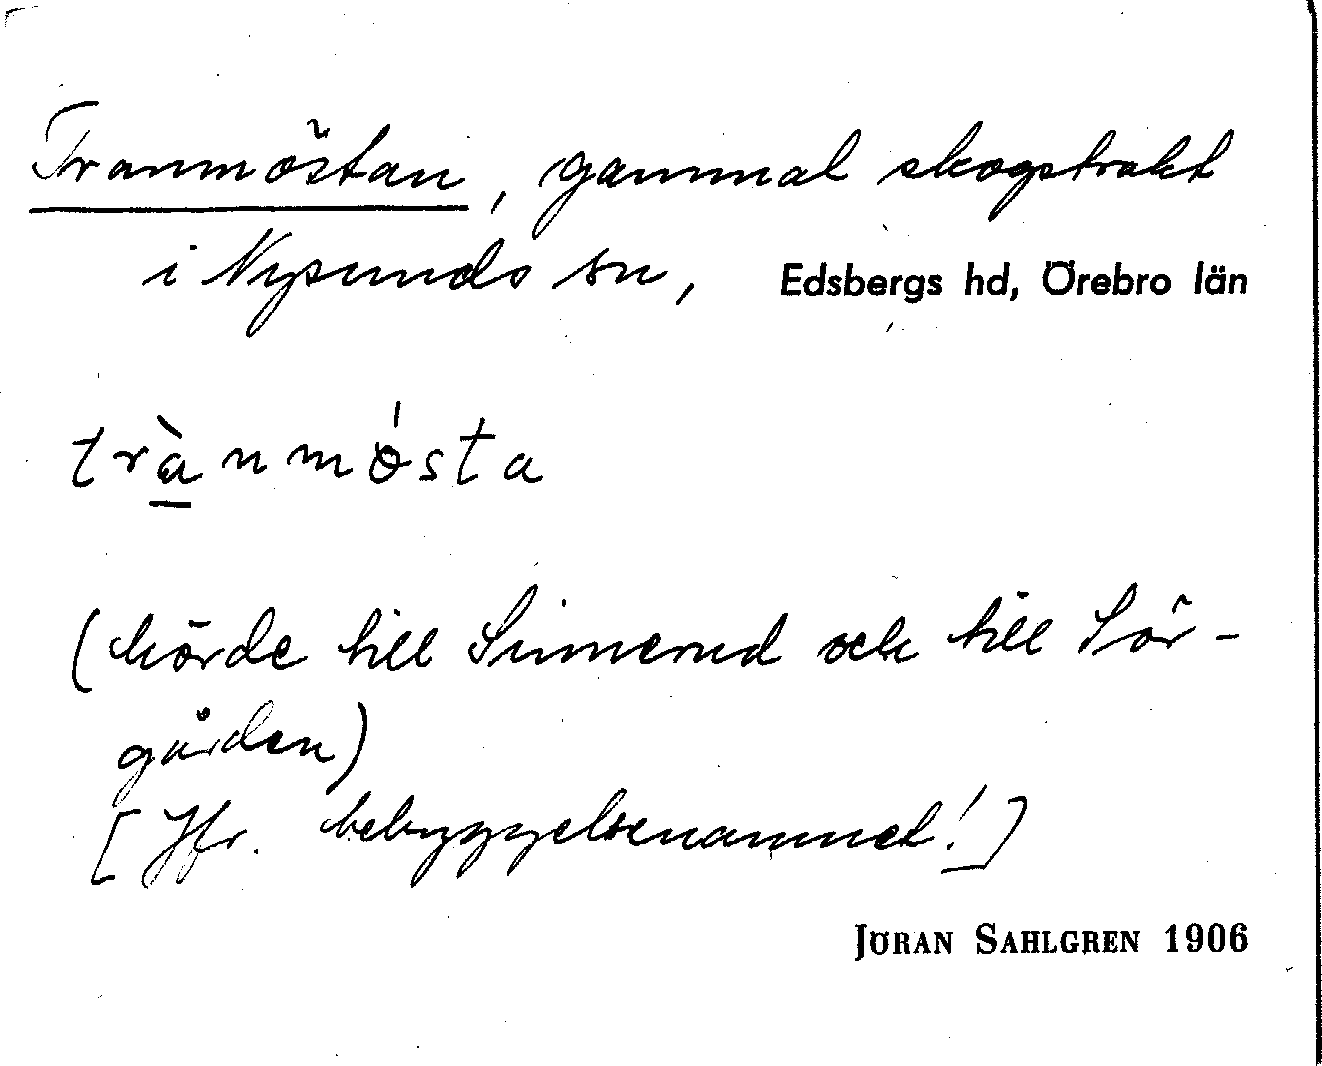 Tranmöstan, gammal skogstrakt
i Nysunds sn, Edsbergs hd, Örebro län
trànmǿsta
(hörde till Sinnerud och till Sör-
gården)
[Jfr. bebyggelsenamnet!]
JÖRAN SAHLGREN 1906